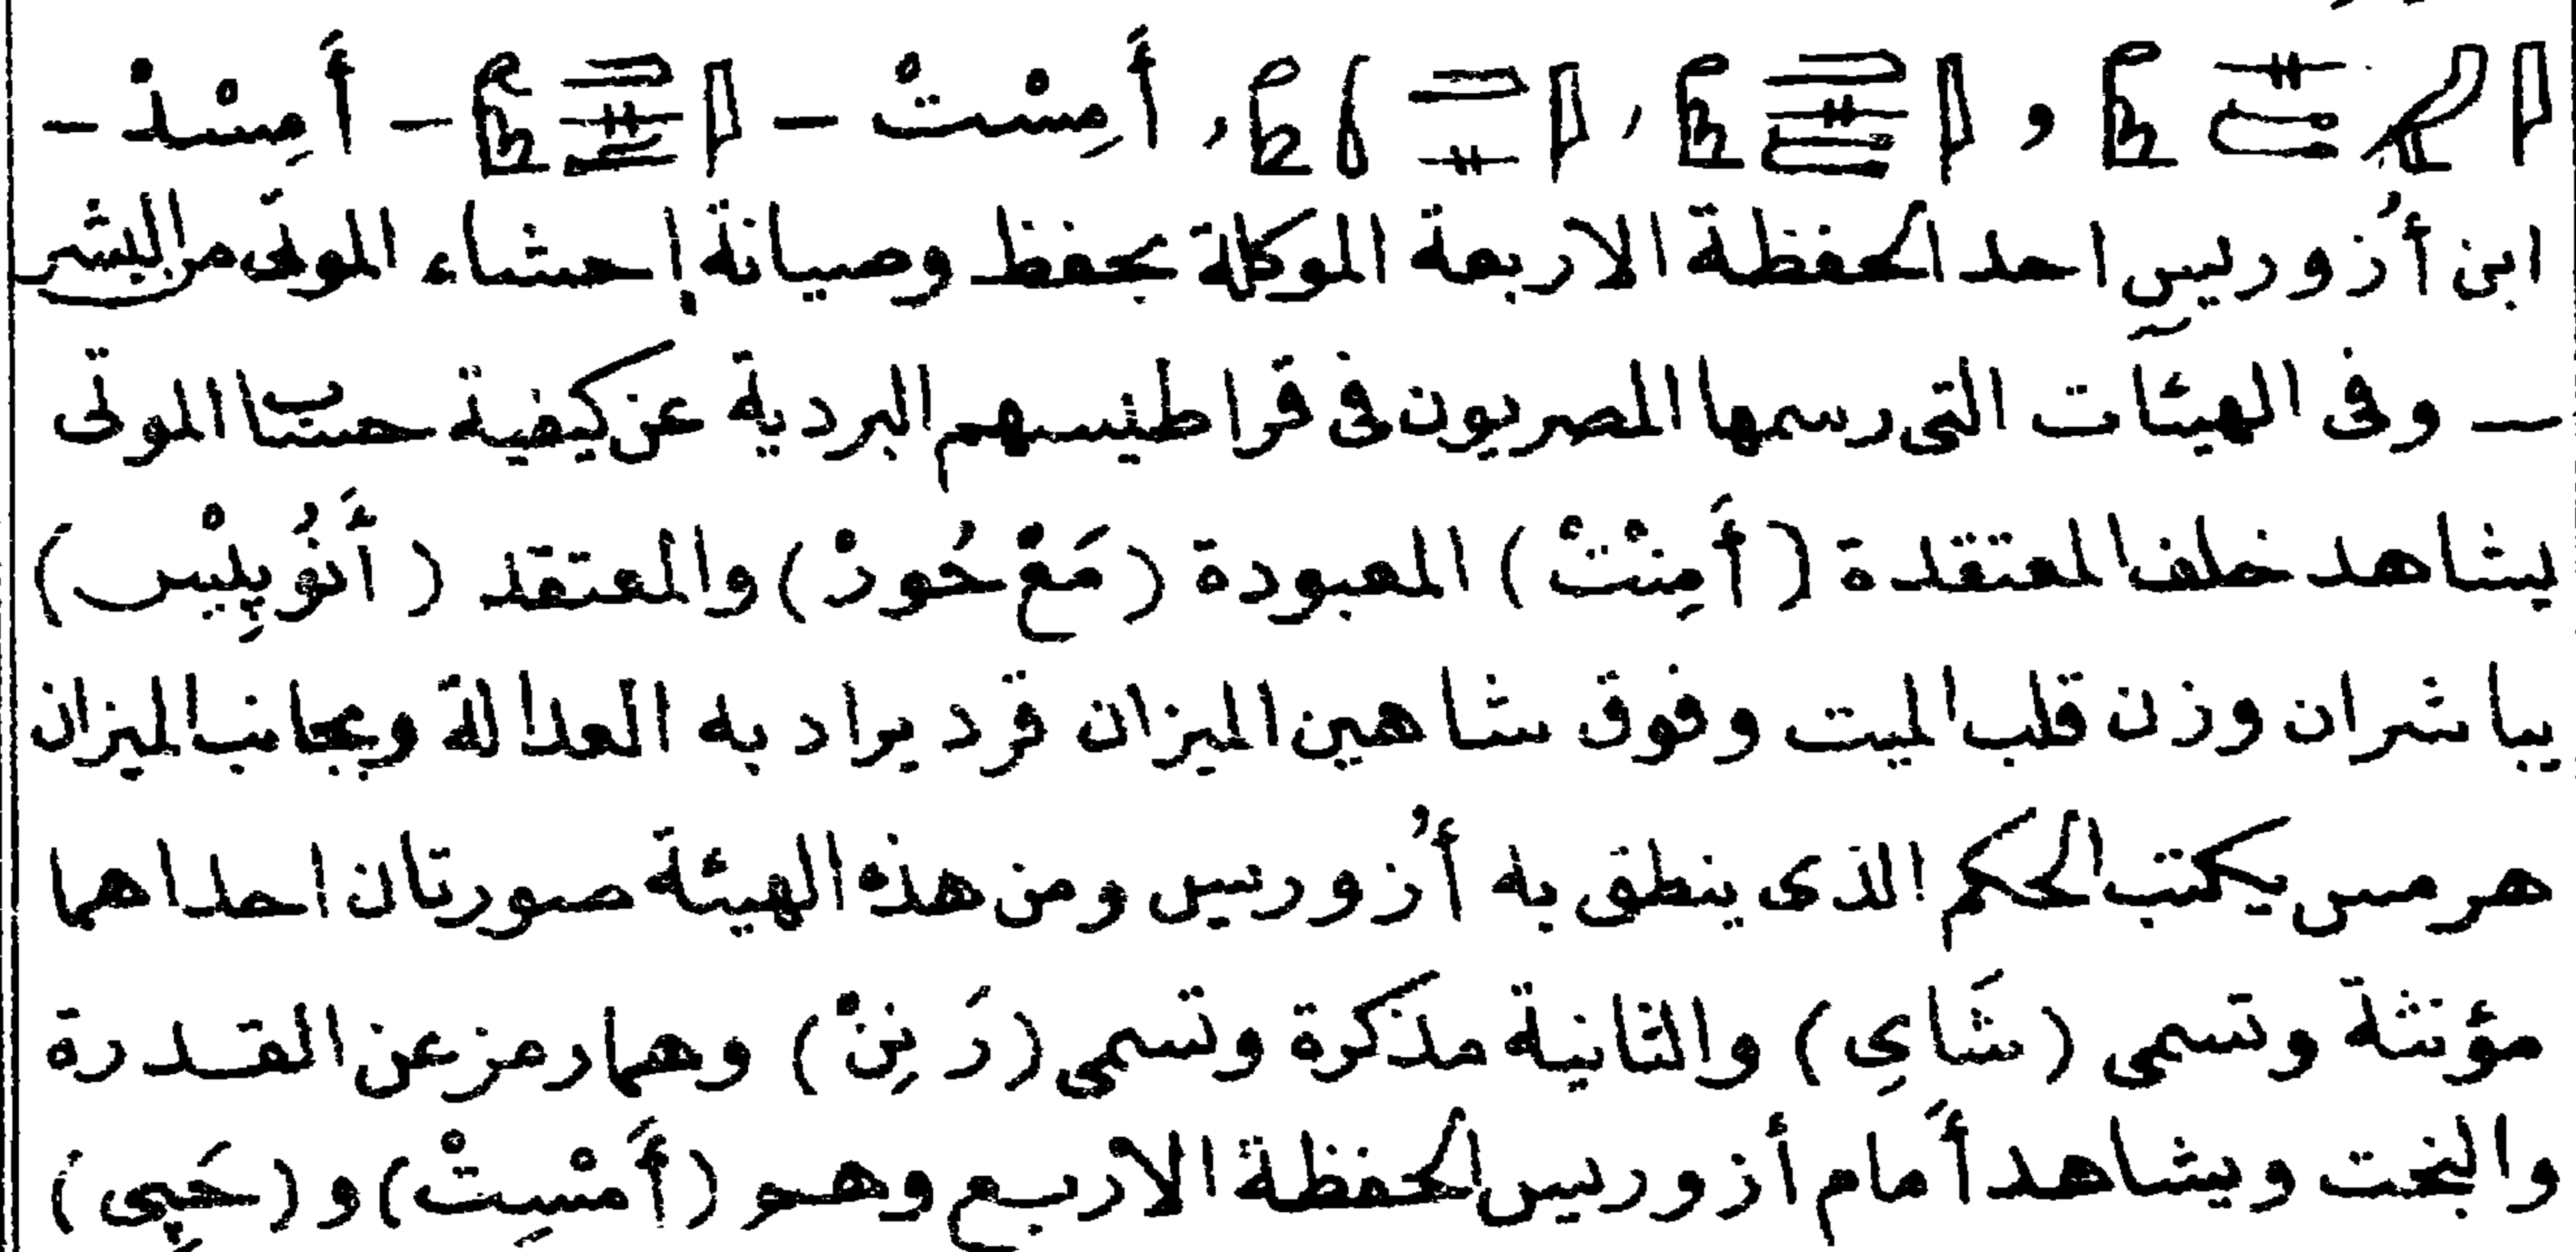 أَمِسْتْ - - أَمِسْدْ -
ابن أُزوريس احد الحفظة الاربعة الموكلة بحفظ وصيانة إحشاء الموتى من البشر
— وفى الهيئات التى رسمها المصريون فى قراطيسهم البردية عن كيفية حساب الموتى
يشاهد خلف المعتقدة (أَمِنْتْ) المعبودة (مَعْ حُورْ) والمعتقد (أَنُوبِيْس)
يباشران وزن قلب الميت وفوق شاهين الميزان قرد يراد به العدالة وبجانب الميزان
هرمس يكتب الحكم الذى ينطق به أُزوريس ومن هذه الهيئة صورتان احداهما
مؤنثة وتسمى (شَايِ) والثانية مذكرة وتسمى (رَنِنْ) وهما رمز عن القدرة
والبخت ويشاهد أَمام أزوريس الحفظة الاربع وهو (أَمْسِتْ) و (حَپِى)